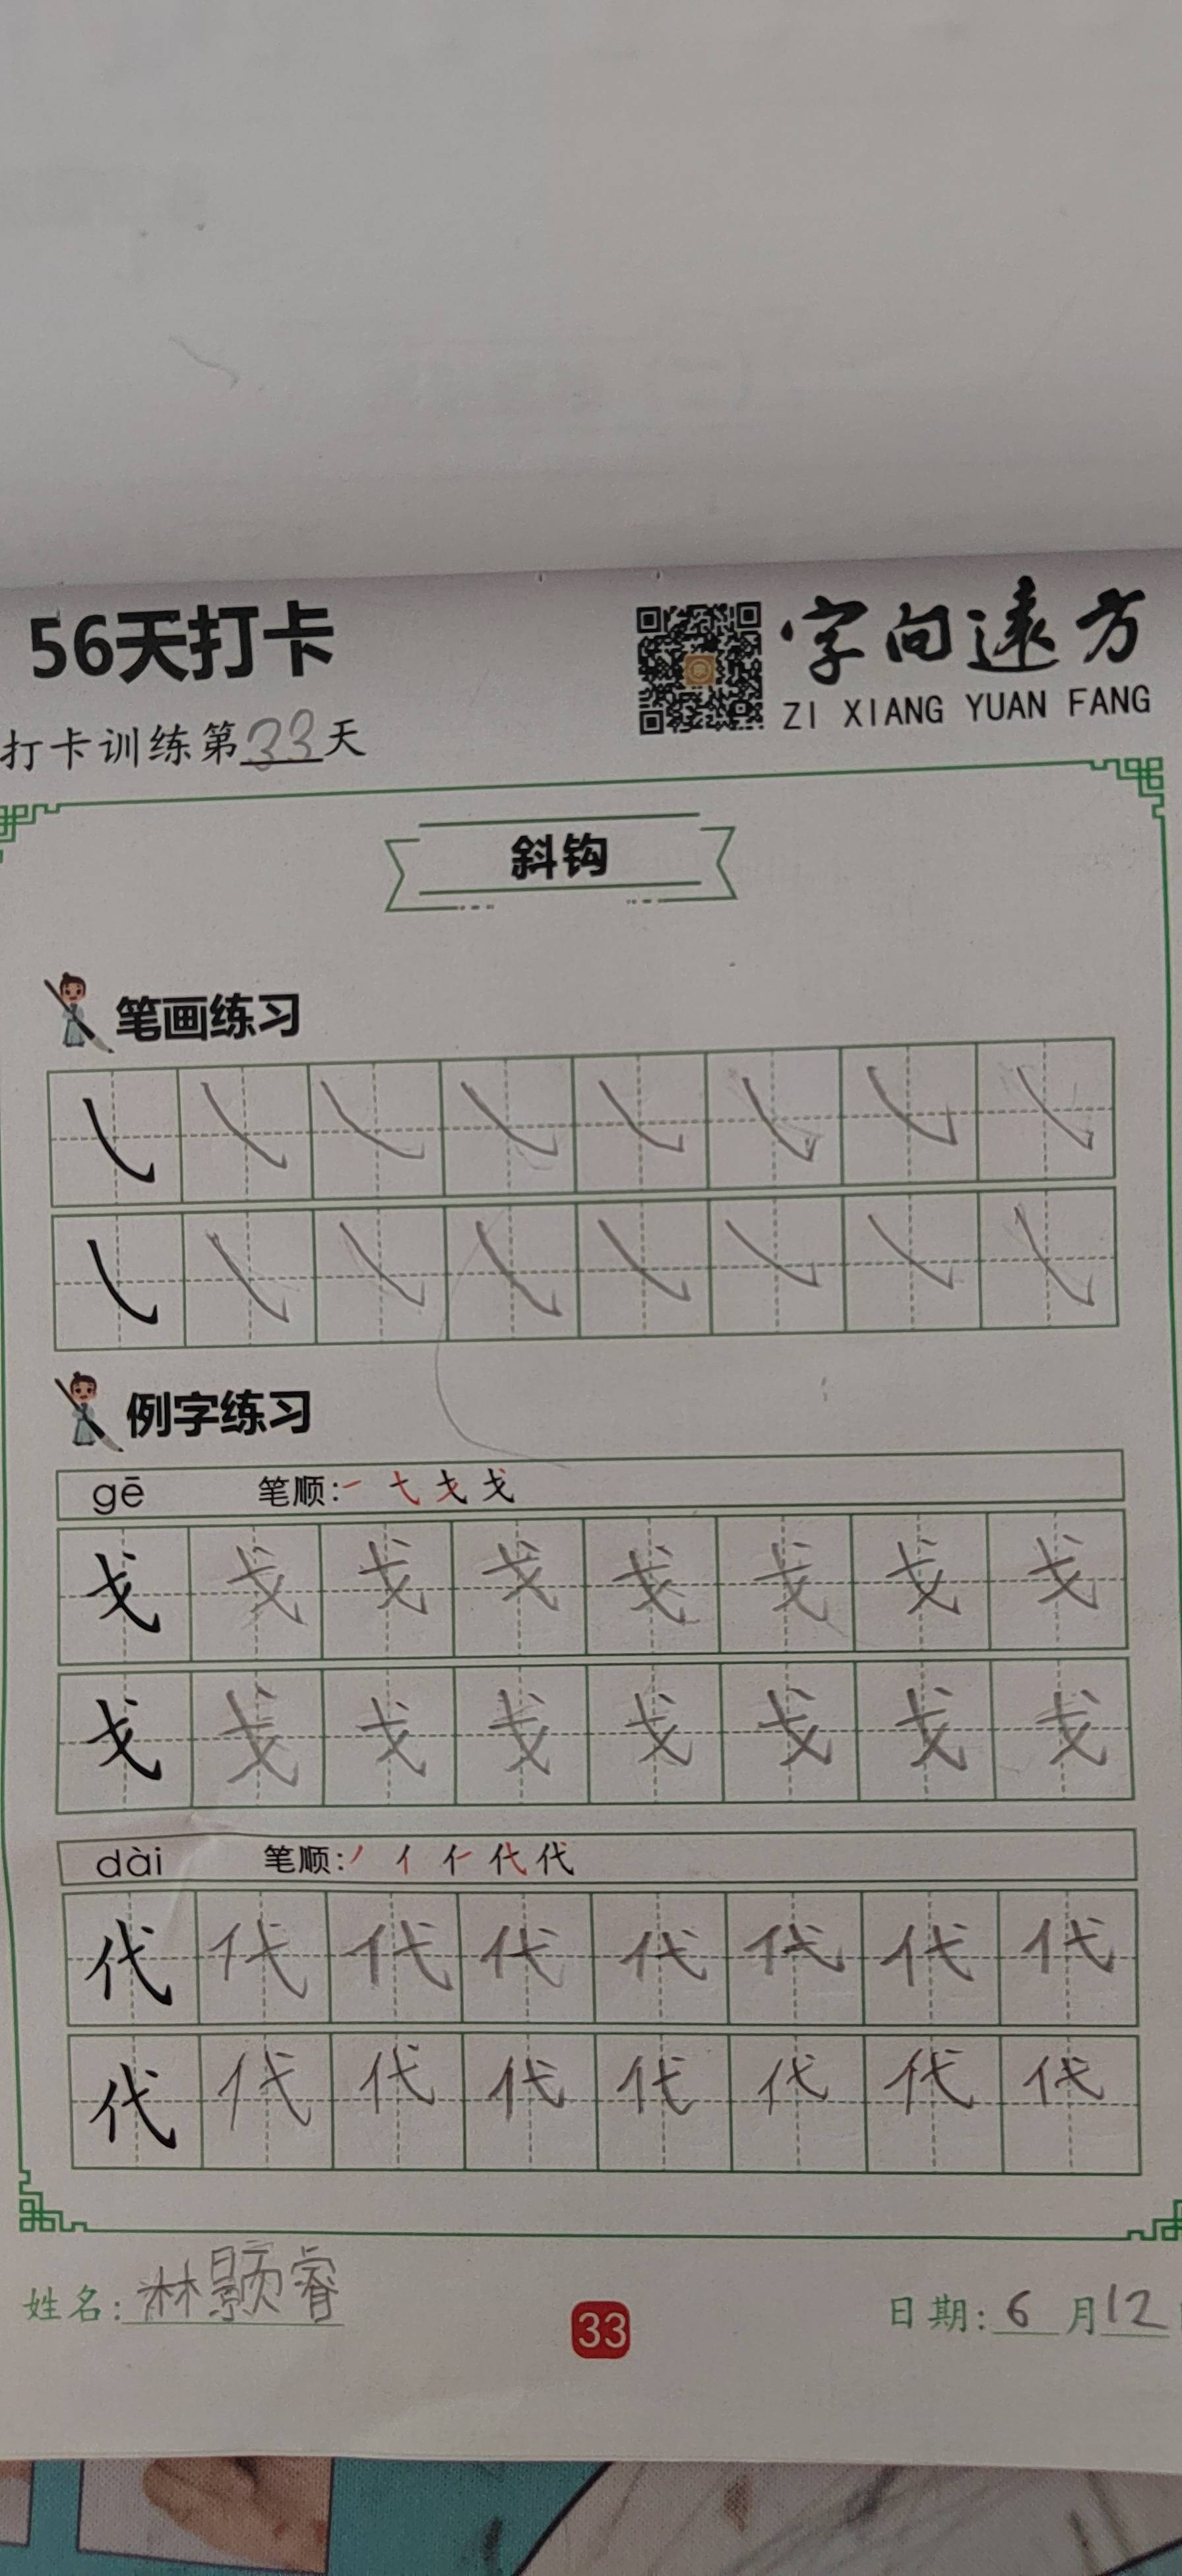 56天打卡
字向遠方
ZI XIANG YUAN FANG
打卡训练第33天
斜钩
笔画练习
例字练习
gē 笔顺:
戈 戈 戈 戈 戈 戈 戈 戈
戈 戈 戈 戈 戈 戈 戈 戈
dài 笔顺:
代 代 代 代 代 代 代 代
代 代 代 代 代 代 代 代
姓名:林颢睿
33
日期:6月12